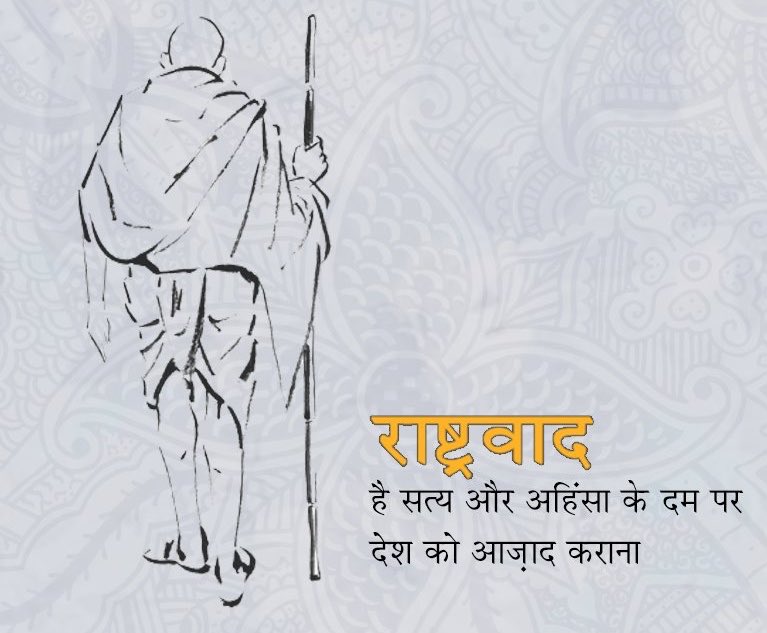 राष्ट्रवाद
है सत्य और अहिंसा के दम पर
देश को आज़ाद कराना